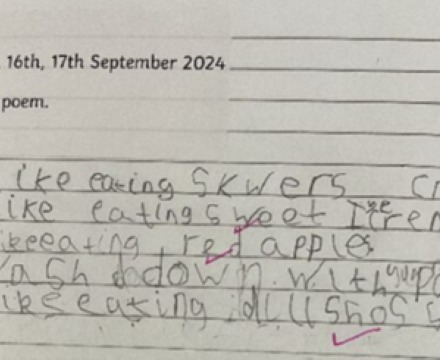 16th, 17th September 2024
poem.
ike eating skwers
ike eating sweet
ikeeating red apple
ash ddown with
ike eating dillshos